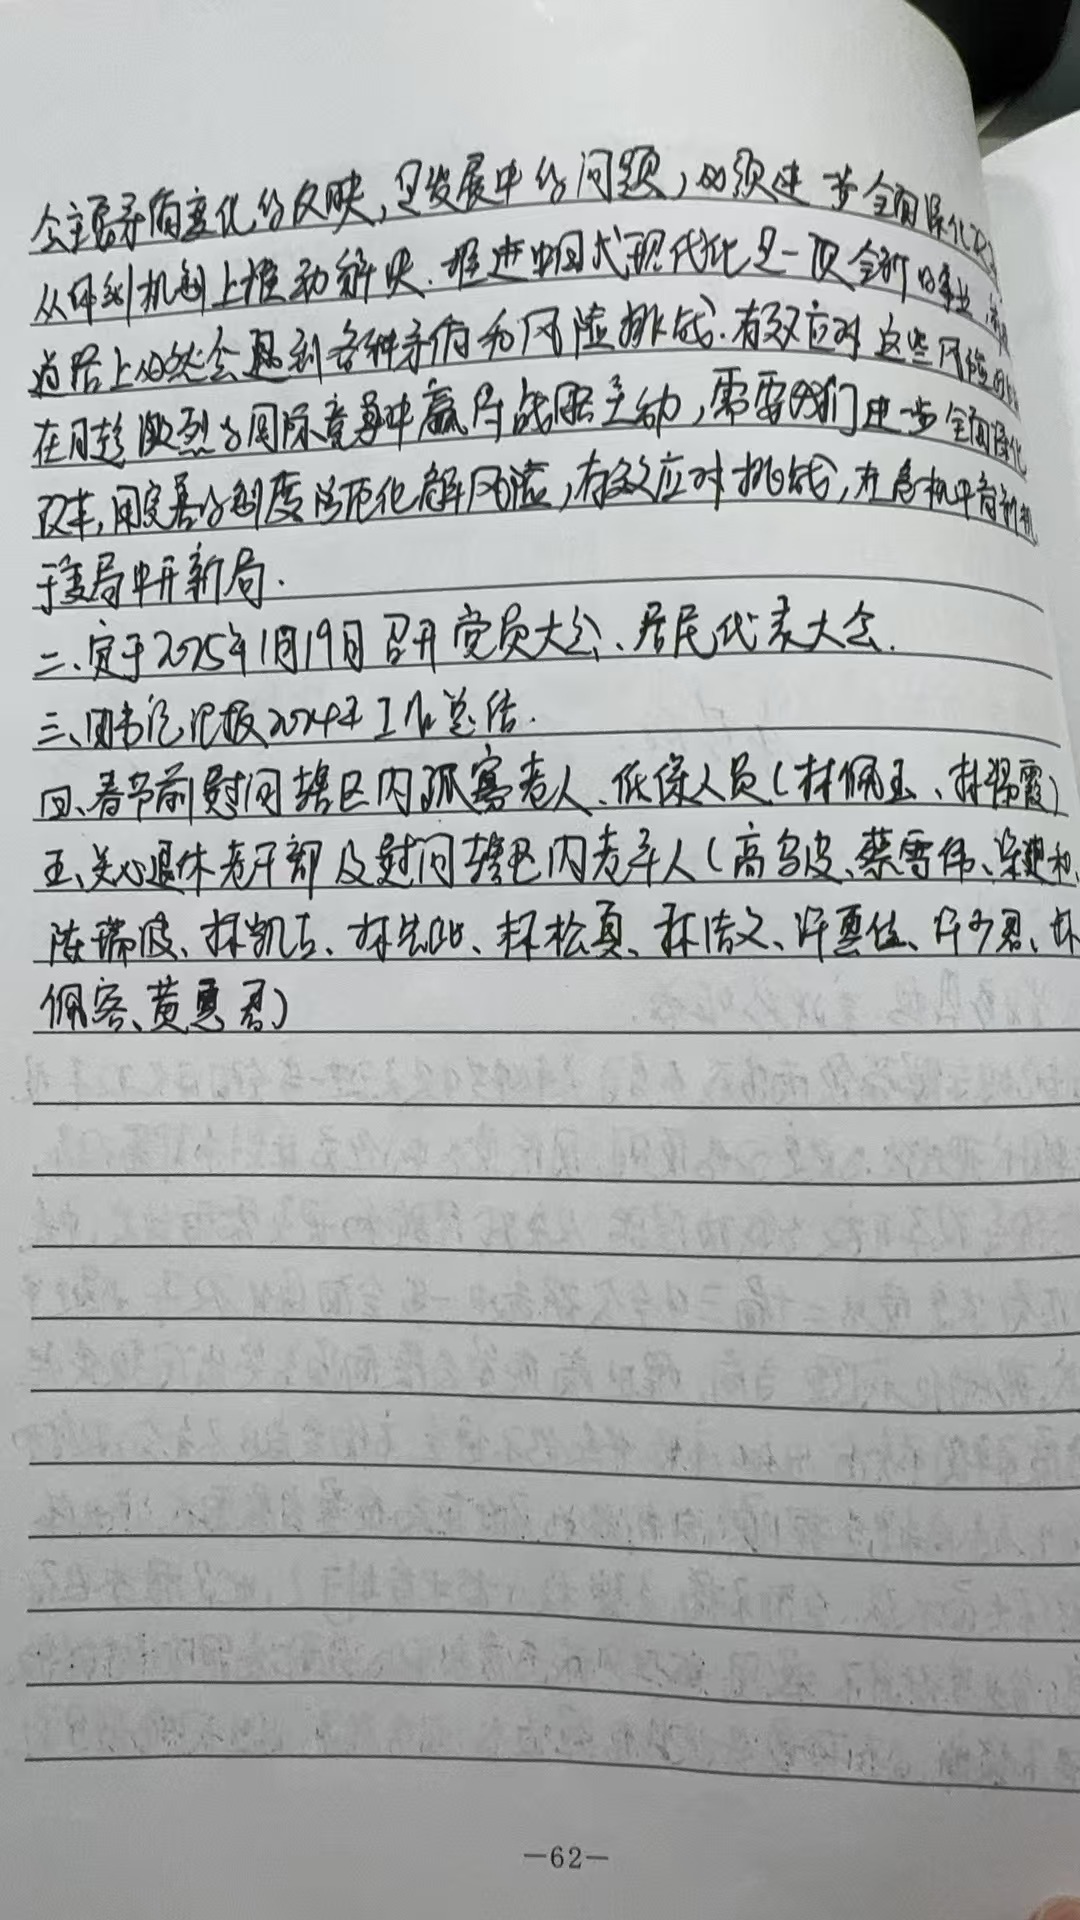 会主要矛盾变化的反映,是发展中的问题,必须进一步全面深化改
从体制机制上推动解决.推进中国式现代化是一项全新的事业,前
道路上必然会遇到各种矛盾和风险挑战.有效应对这些风险
在日趋激烈的国际竞争中赢得战略主动,需要我们进一步全面深化
改革,用完善的制度防范化解风险,有效应对挑战,在危机中育新机
于变局中开新局.
二、定于2025年1月19日召开党员大会、居民代表大会.
三、团书记汇报2024年工作总结.
四、春节前慰问辖区内孤寡老人、低保人员(林佩玉、林锡霞)
五、关心退休老干部及慰问辖区内老军人(高乌皮、蔡雪伟、梁
陈瑞波、林凯、林、林松真、林洁文、许惠佳、许少君、林
佩容、黄惠君)
—62—